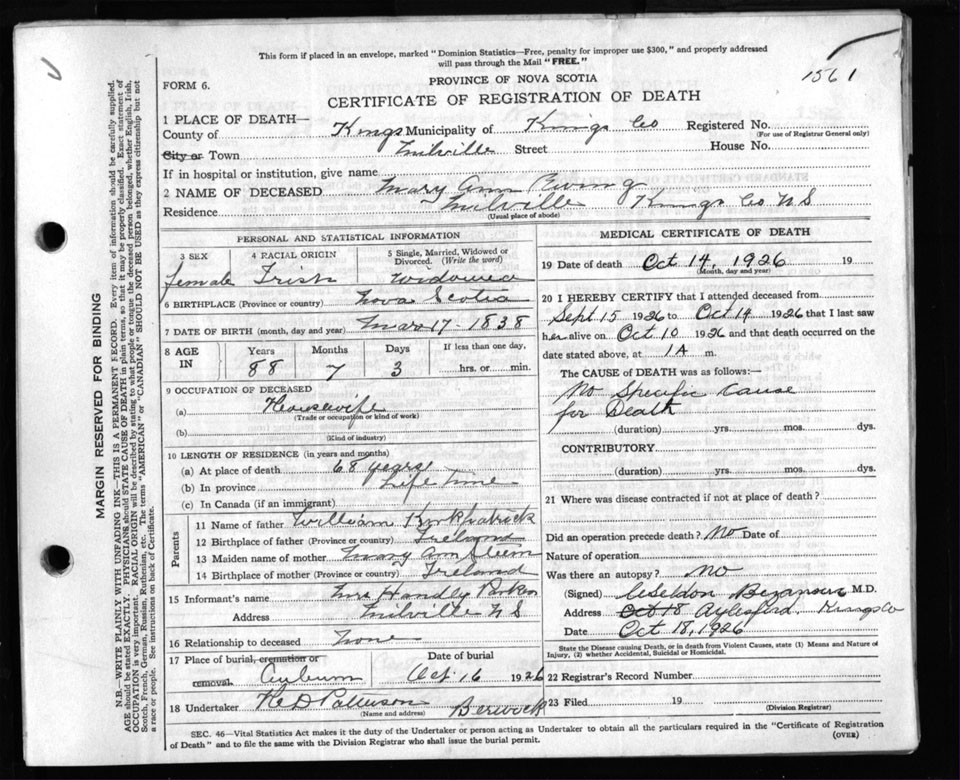 This form if placed in an envelope, marked "Dominion Statistics—Free, penalty for improper use $300," and properly addressed
will pass through the Mail "FREE."
1561
PROVINCE OF NOVA SCOTIA
FORM 6.
CERTIFICATE OF REGISTRATION OF DEATH
1 PLACE OF DEATH—
County of Kings Municipality of Kings Co Registered No.
(For use of Registrar General only)
City or Town Milville Street House No.
If in hospital or institution, give name
2 NAME OF DECEASED Mary Ann Ewing
Residence Milville Kings Co N S
(Usual place of abode)
PERSONAL AND STATISTICAL INFORMATION
3 SEX 4 RACIAL ORIGIN 5 Single, Married, Widowed or Divorced. (Write the word)
female Irish Widowed
6 BIRTHPLACE (Province or country) Nova Scotia
7 DATE OF BIRTH (month, day and year) Mar 17 - 1838
8 AGE IN Years Months Days If less than one day,
88 7 3 hrs. or min.
9 OCCUPATION OF DECEASED
(a) Housewife
(Trade or occupation or kind of work)
(b)
(Kind of industry)
10 LENGTH OF RESIDENCE (in years and months)
(a) At place of death 68 years
(b) In province Life time
(c) In Canada (if an immigrant)
Parents
11 Name of father William Kirkpatrick
12 Birthplace of father (Province or country) Ireland
13 Maiden name of mother Mary Ann
14 Birthplace of mother (Province or country) Ireland
15 Informant's name Mrs Handly Parker
Address Milville N S
16 Relationship to deceased None
17 Place of burial, cremation or removal Date of burial
Auburn Oct 16 1926
18 Undertaker H D Patterson Berwick
(Name and address)
MEDICAL CERTIFICATE OF DEATH
19 Date of death Oct 14, 1926 19
(Month, day and year)
20 I HEREBY CERTIFY that I attended deceased from
Sept 15 1926 to Oct 14 1926 that I last saw
her alive on Oct 10 1926 and that death occurred on the
date stated above, at 1 A m.
The CAUSE of DEATH was as follows:—
No Specific Cause
for Death
(duration) yrs. mos. dys.
CONTRIBUTORY
(duration) yrs. mos. dys.
21 Where was disease contracted if not at place of death?
Did an operation precede death? No Date of
Nature of operation
Was there an autopsy? No
(Signed) Bezanson M.D.
Address Oct 18 Aylesford. Kings Co
Date Oct 18, 1926
State the Disease causing Death, or in death from Violent Causes, state (1) Means and Nature of
Injury, (2) whether Accidental, Suicidal or Homicidal.
22 Registrar's Record Number
23 Filed 19
(Division Registrar)
SEC. 46—Vital Statistics Act makes it the duty of the Undertaker or person acting as Undertaker to obtain all the particulars required in the "Certificate of Registration
of Death" and to file the same with the Division Registrar who shall issue the burial permit.
(OVER)
MARGIN RESERVED FOR BINDING
N.B.—WRITE PLAINLY WITH UNFADING INK—THIS IS A PERMANENT RECORD. Every item of information should be carefully supplied.
AGE should be stated EXACTLY. PHYSICIANS should STATE CAUSE OF DEATH in plain terms, so that it may be properly classified. Exact statement of
OCCUPATION is very important. RACIAL ORIGIN will be described by stating to what people or tongue the deceased person belonged, whether English, Irish,
Scotch, French, German, Russian, Ruthenian, etc. The terms "AMERICAN" or "CANADIAN" SHOULD NOT BE USED as they express citizenship but not
a race or people. See instructions on back of Certificate.